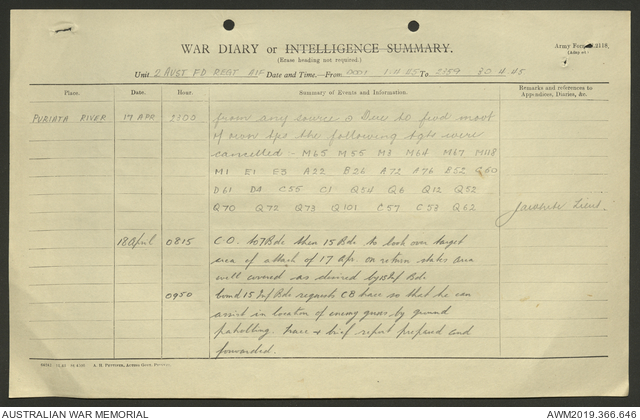 WAR DIARY or INTELLIGENCE SUMMARY.
(Erase heading not required.)
Army Form 2118.
Unit 2 AUST FD REGT AIF Date and Time—From 1.4.45 To 2359 30.4.45
Place. Date. Hour. Summary of Events and Information. Remarks and references to Appendices, Diaries, &c.
PURIATA RIVER 17 APR 2100 from any source
the following tgts were
cancelled :- M65 M55 M3 M64 M67 M118
M1 E1 F3 A22 B26 A72 A76 B52 Q60
D61 D4 C55 C1 Q54 Q6 Q12 Q52
Q70 Q72 Q73 Q101 C57 C53 Q62 Lieut.
18 April 0815 C.O. to 7 Bde then 15 Bde to look over target
area of attack of 17 Apr. on return states area
well covered as desired by 15 Inf Bde
0950 Comd 15 Inf Bde requests CB trace so that he can
assist in location of enemy guns by ground
patrolling. Trace & brief report prepared and
forwarded.
AUSTRALIAN WAR MEMORIAL
AWM2019.366.646